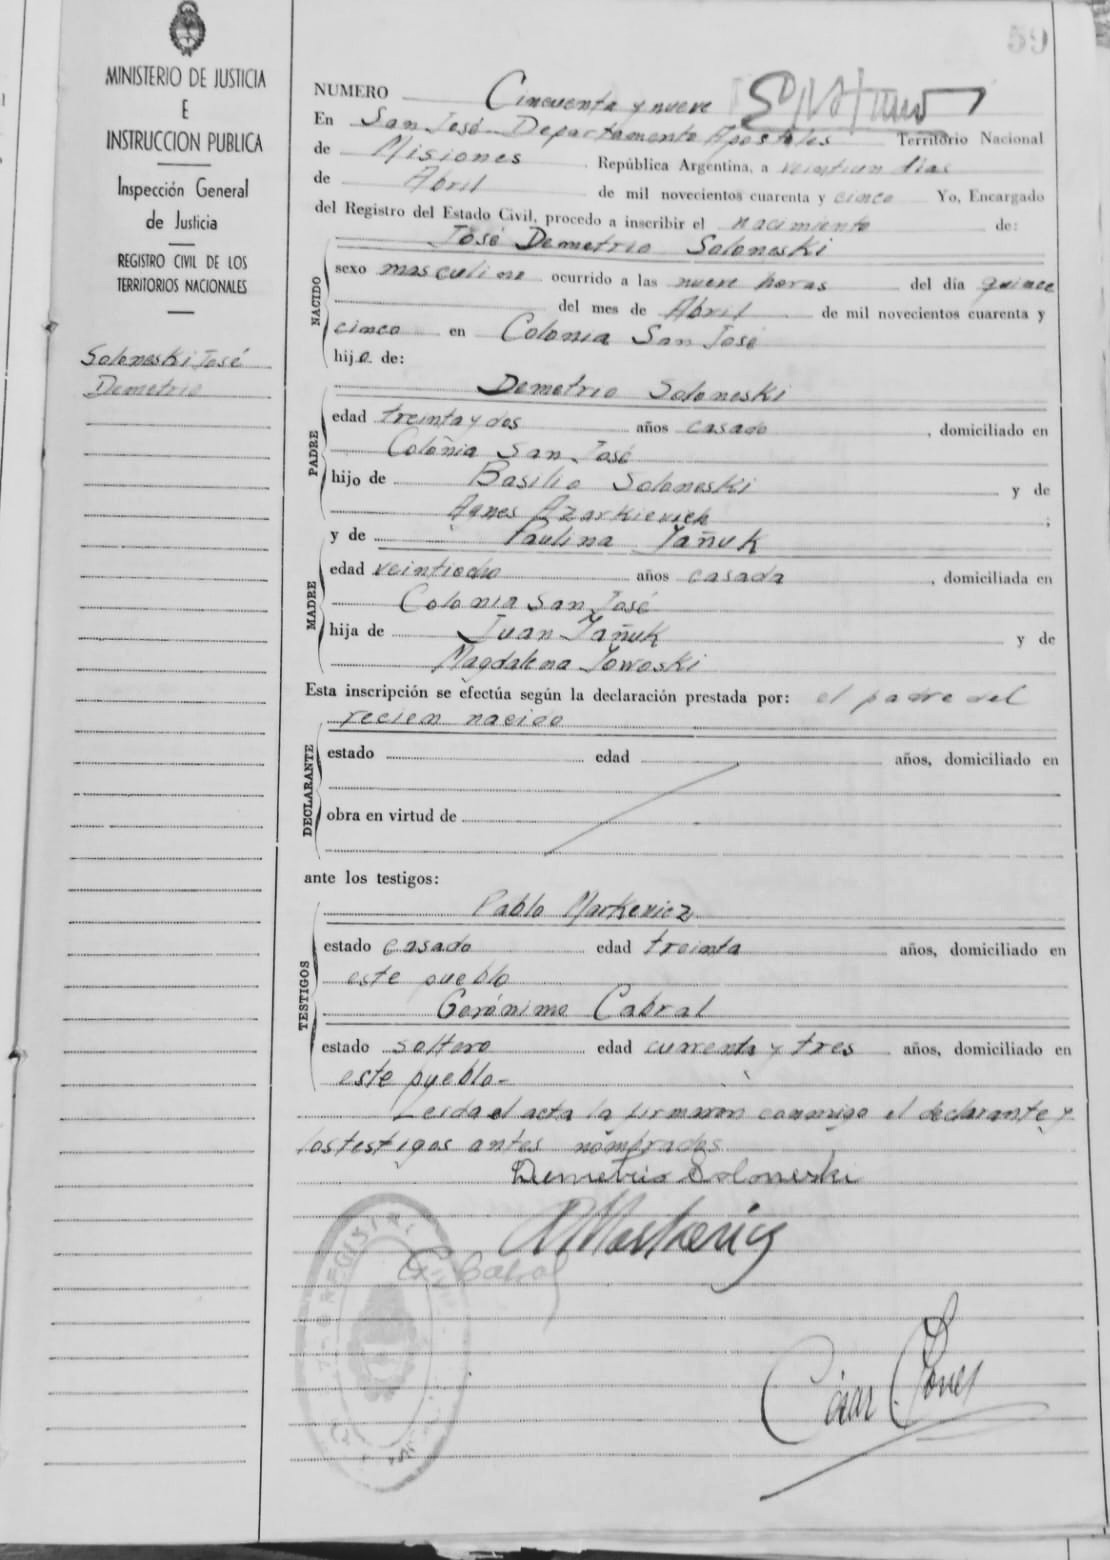 59
MINISTERIO DE JUSTICIA
E
INSTRUCCION PUBLICA
Inspección General
de Justicia
REGISTRO CIVIL DE LOS
TERRITORIOS NACIONALES
Soloneski José
Demetrio
NUMERO Cincuenta y nueve
En San José Departamento Apostoles Territorio Nacional
de Misiones República Argentina, a veintiun dias
de Abril de mil novecientos cuarenta y cinco Yo, Encargado
del Registro del Estado Civil, procedo a inscribir el nacimiento de:
José Demetrio Soloneski
NACIDO
sexo masculino ocurrido a las nueve horas del día quince
del mes de Abril de mil novecientos cuarenta y
cinco en Colonia San José
hijo de:
PADRE
Demetrio Soloneski
edad treinta y dos años casado, domiciliado en
Colonia San José
hijo de Basilio Soloneski y de
Agnes Azarkievich;
MADRE
y de Paulina Iañuk
edad veintiocho años casada, domiciliada en
Colonia San José
hija de Juan Iañuk y de
Magdalena Iowoski
Esta inscripción se efectúa según la declaración prestada por: el padre del
recien nacido
DECLARANTE
estado edad años, domiciliado en
obra en virtud de
ante los testigos:
TESTIGOS
Pablo Markevicz
estado casado edad treinta años, domiciliado en
este pueblo
Gerónimo Cabral
estado soltero edad cuarenta y tres años, domiciliado en
este pueblo-
Leida el acta la firmaron conmigo el declarante y
los testigos antes nombrados
Demetrio Soloneski
P Markevicz
G. Cabral
REGISTR
César